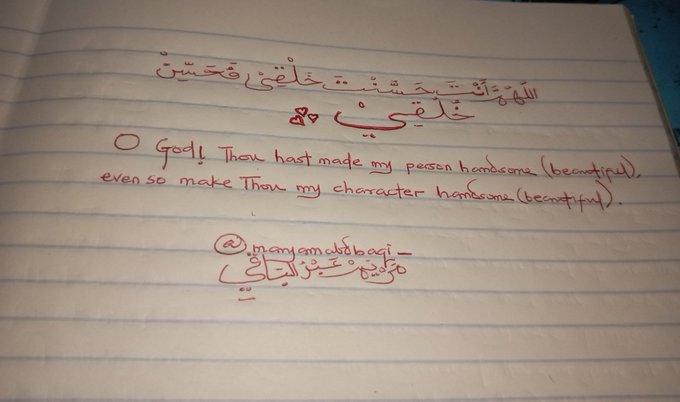 اللَّهُمَّ أَنْتَ حَسَّنْتَ خَلْقِيْ فَحَسِّنْ
خُلُقِيْ
O God! Thou hast made my person handsome (beautiful),
even so make Thou my character handsome (beautiful).
@maryamabdbaqi_
مَرْيَمْ عَبْدُ الْبَاقِيْ